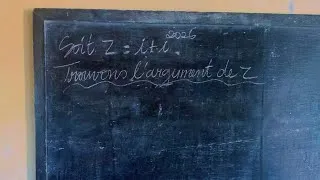 Soit Z = i + i²⁰²⁶.
Trouvons l'argument de Z